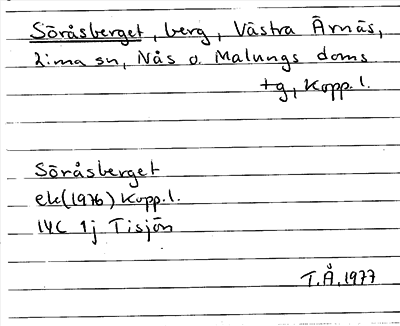 Söråsberget, berg, Västra Ärnäs,
Lima sn, Nås o. Malungs doms
tg, Kopp. l.
Söråsberget
ek(1976) Kopp. l.
14C 1j Tisjön
T.Å. 1977